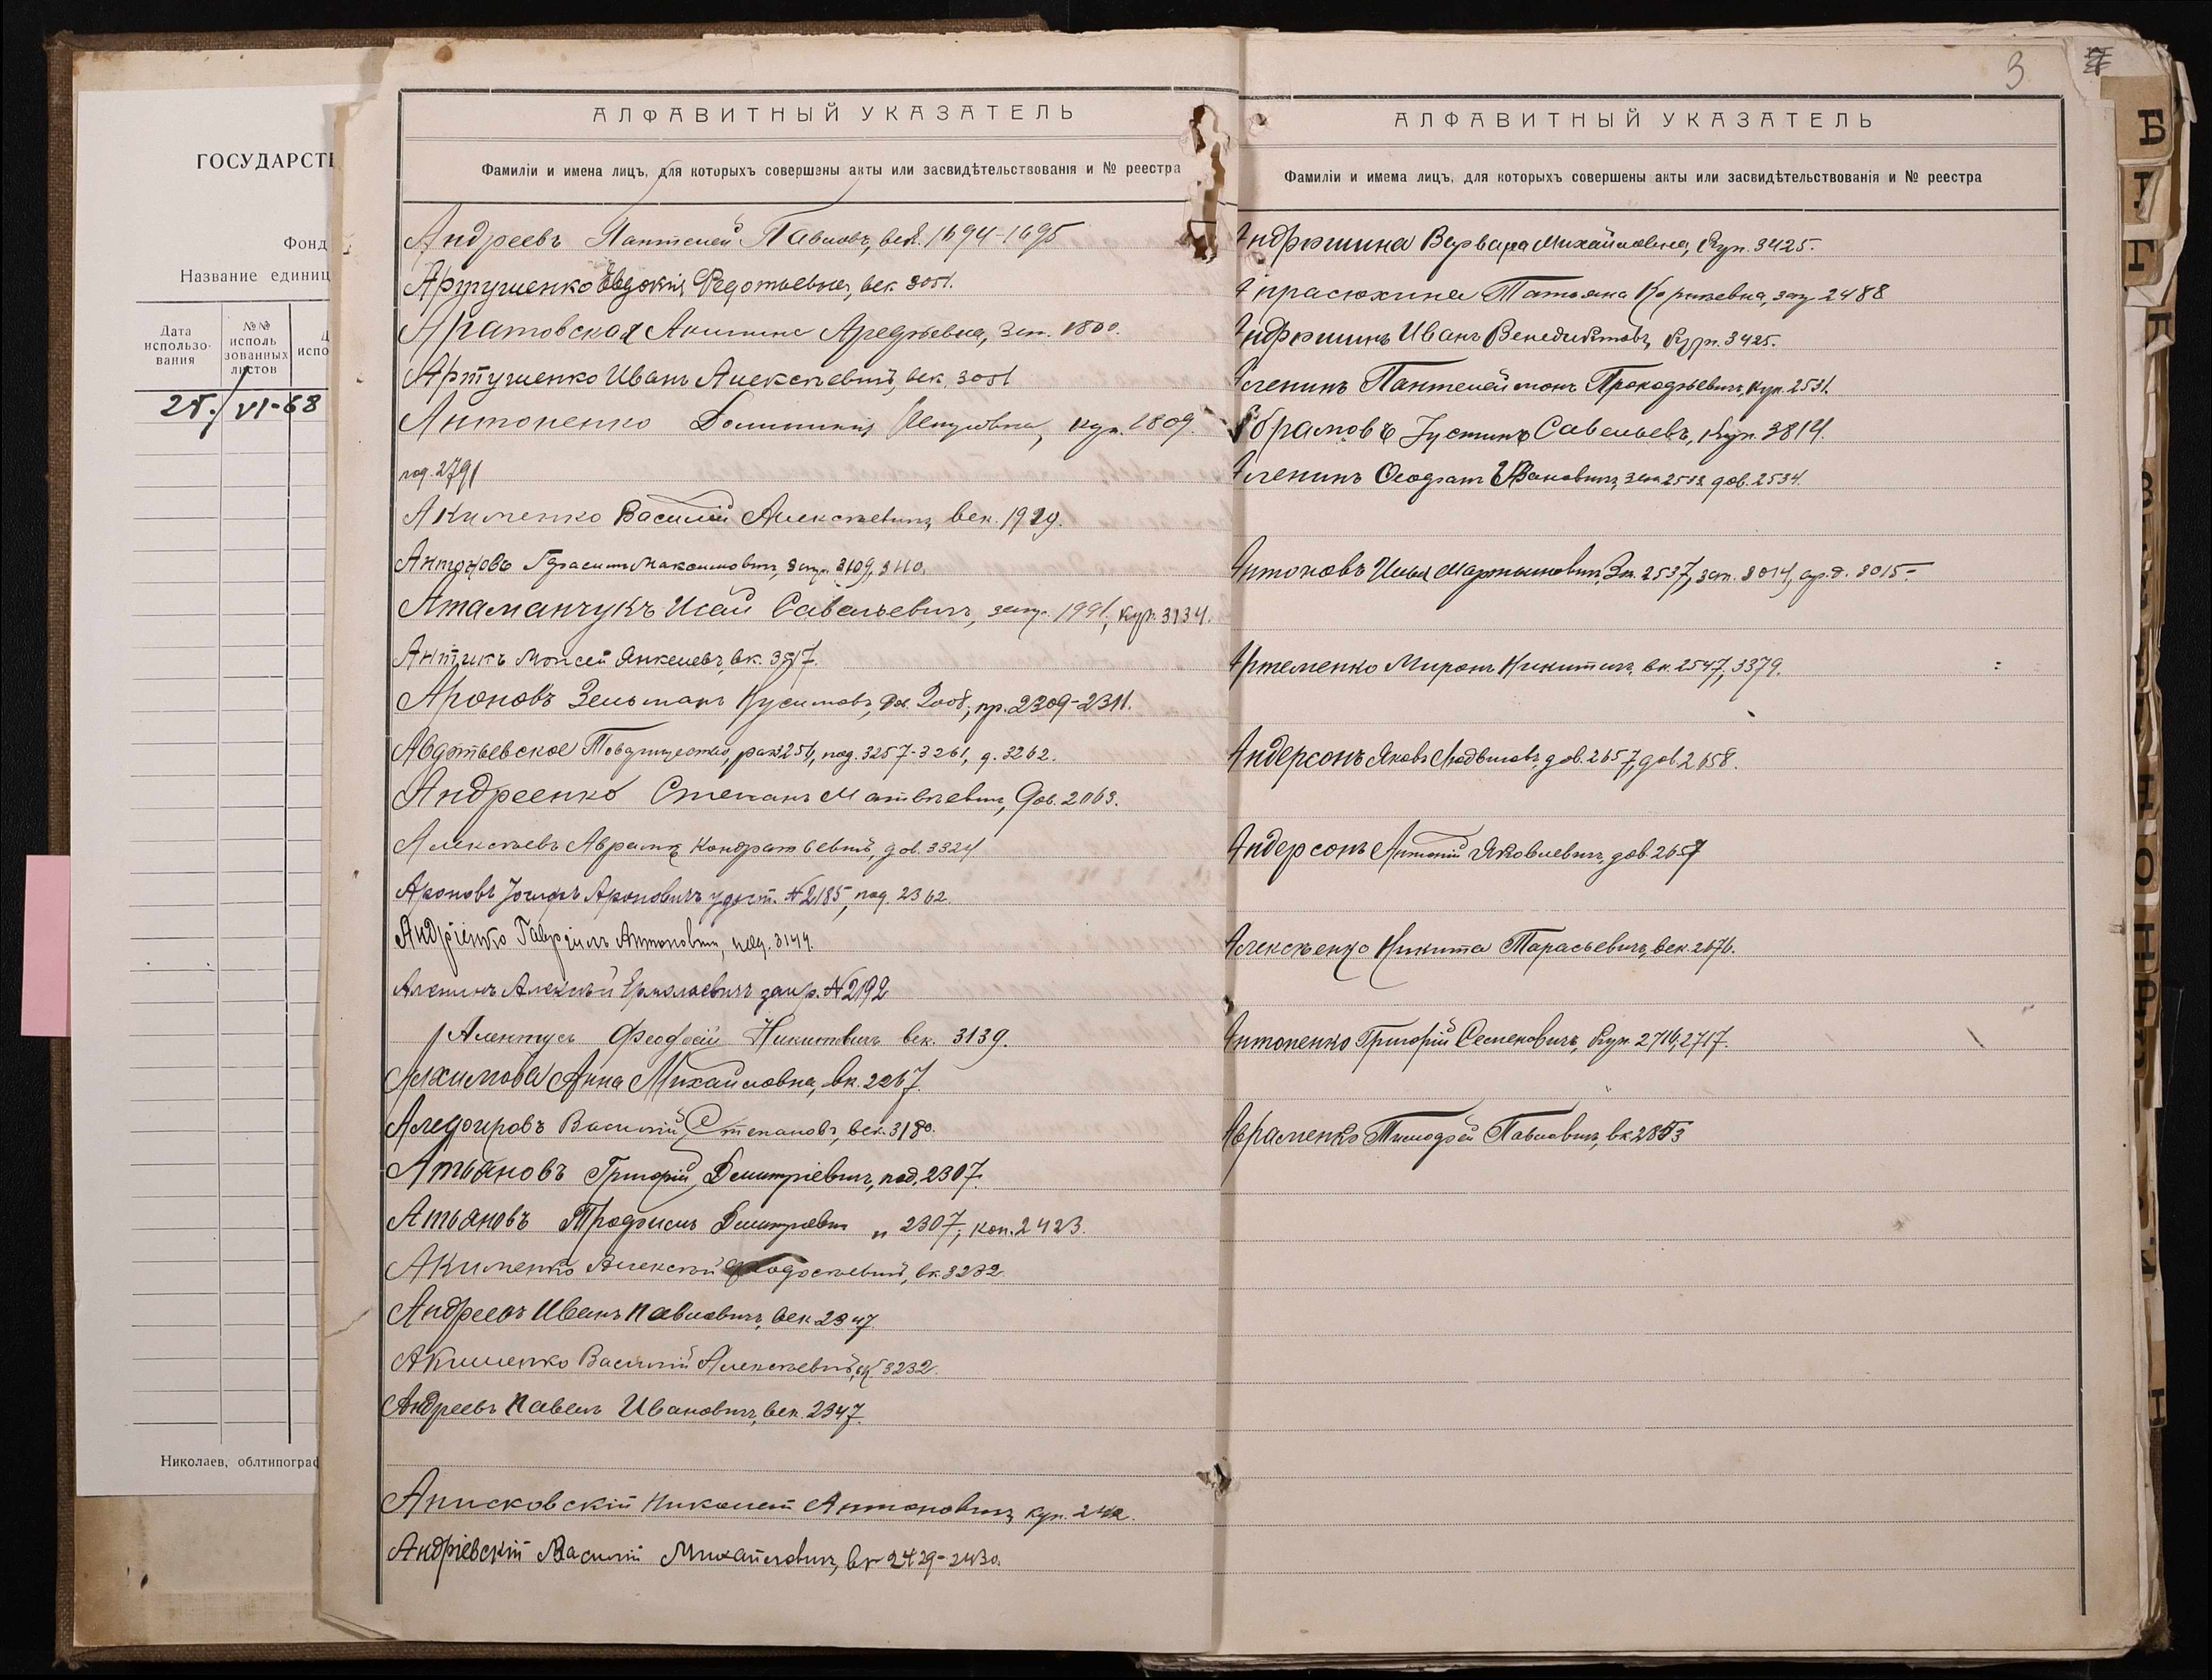 ГОСУДАРСТВ
Фонд
Название единиц
Дата использо-вания
№№ исполь зованных листов
Д испо
25/VI-68
Николаев, облтипограф
3
АЛФАВИТНЫЙ УКАЗАТЕЛЬ
Фамиліи и имена лицъ, для которыхъ совершены акты или засвидѣтельствованія и № реестра
Андреевъ Пантелей Павловъ, век. 1694-1695
Артушенко Евдокія Федотьевна, век 3051.
Аратовская Арефьевна, 1800.
Артушенко Иванъ Алексѣевичъ, век. 3051
Антоненко куп. 1809.
под. 2791
Акименко Василій Алексѣевичъ, век. 1929.
Антоновъ Герасимъ Максимовичъ, зап. 3109, 3110.
Атаманчукъ Исай Савельевичъ, 1991, куп. 3134.
Антикъ Моисей Янкелевъ, вк.
Ароновъ Зельманъ дов. 2008, пр. 2309-2311.
Авдотьевское Товарищество, 3256, под. 3257-3261, д. 3262.
Андреенко Степанъ Матвѣевичъ, дов. 2063.
Алексѣевъ Аврамъ Кондратьевичъ, дов. 3324
Ароновъ Іосифъ Ароновичъ удост. №2185, под. 2362.
Андріенко Гавріилъ Антоновичъ, под. 3144.
Аленинъ Алексѣй Ермолаевичъ запр. №2192
Алентусь Феодосій Никитовичъ век. 3139.
Алхимова Анна Михайловна, вк. 2267.
Василій Степановъ, век. 3180.
Атьяновъ Григорій Дмитріевичъ, под. 2307.
Атьяновъ Трофимъ Дмитріевич „ 2307; коп. 2423.
Акименко Алексѣй Феодосѣевичъ, вк. 3232
Андреевъ Иванъ Павловичъ, век. 2347.
Акименко Василій Алексѣевичъ, вк 3232.
Андреевъ Павелъ Ивановичъ, век. 2347.
Анисковскій Николай Антоновичъ, куп.
Андріевскій Василій Михайловичъ, вк 2429-2430.
АЛФАВИТНЫЙ УКАЗАТЕЛЬ
Фамиліи и имема лицъ, для которыхъ совершены акты или засвидѣтельствованія и № реестра
Андрюшина Варвара Михайловна, Куп. 3425.
Апрасюхина Татьяна зап. 2488
Андрюшинъ Иванъ Венедиктовъ, Куп. 3425.
Аленинъ Пантелеймонъ Прокофьевичъ, куп. 2531.
Абрамовъ Іустинъ Савельевъ, Куп. 3814.
Аленинъ Ивановичъ, дов. 2534.
Антоновъ Илья Мартыновичъ, Зап. 2537, зап. 3014, ар.д. 3015.
Артеменко Миронъ Никитичъ, вк. 2547, 3379.
Андерсонъ Яковъ Людвиговъ, дов. 2657, дов 2658.
Андерсонъ Антоній Яковлевичъ, дов. 2657
Алексѣенко Никита Тарасьевичъ, век. 2676.
Антоненко Григорій Семеновичъ, Куп. 2716, 2717.
Авраменко Тимофей Павловичъ, вк
Б
Г